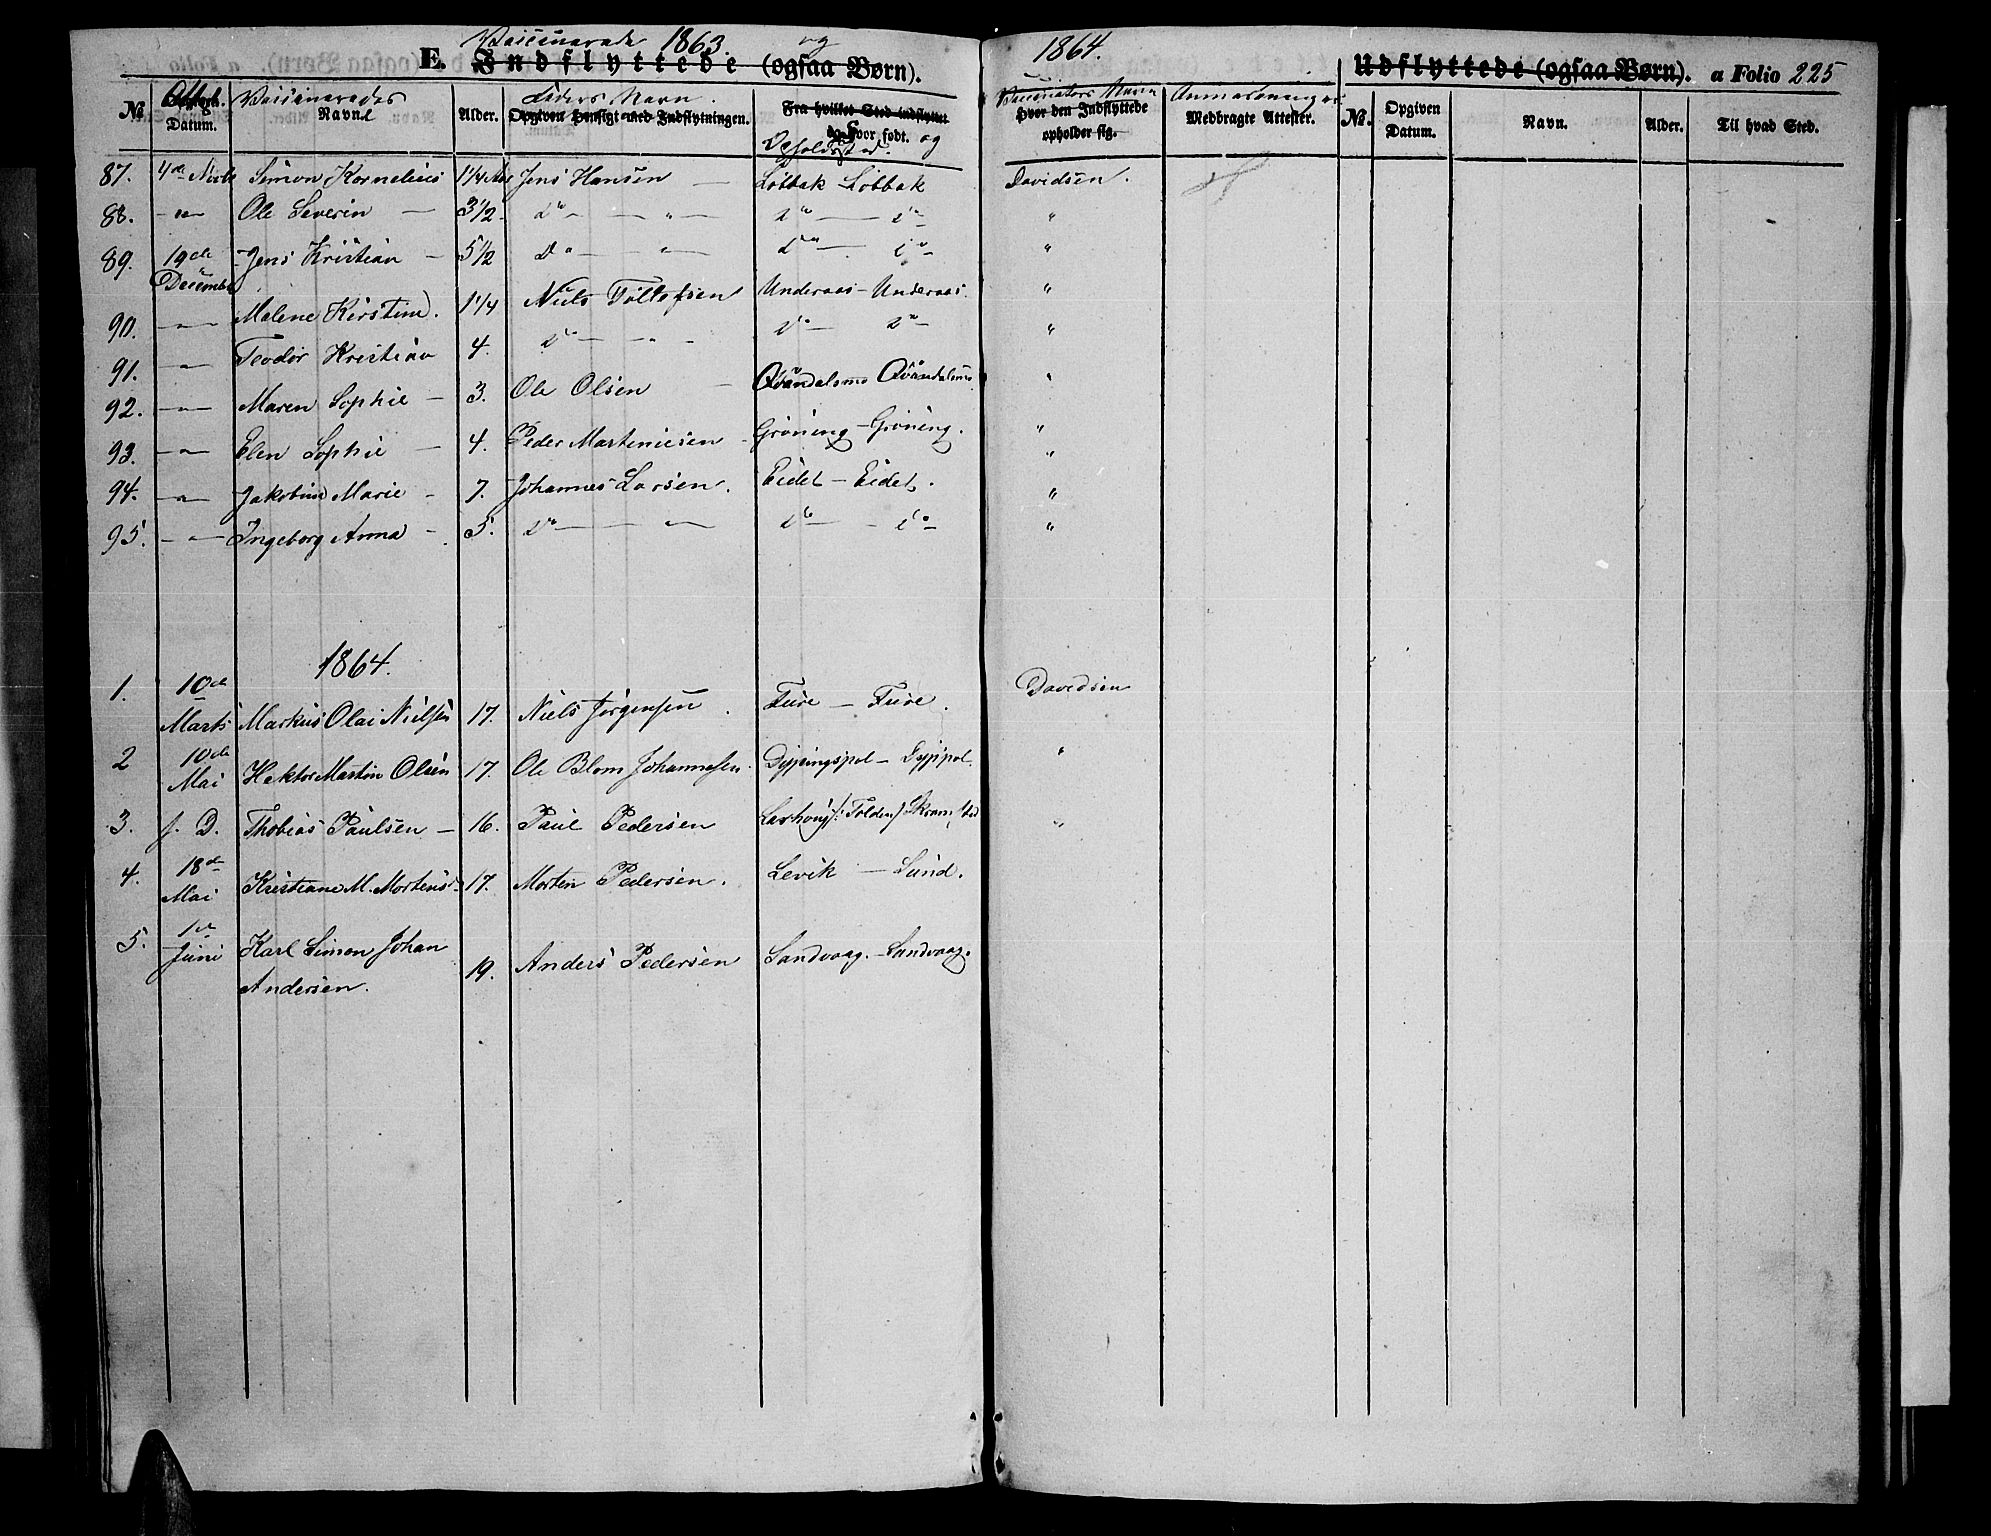 Vaccinerede 1863. og 1864.
E. Indflyttede (ogsaa Børn). Udflyttede (ogsaa Børn). a Folio 225
№ Attest. Datum. Vaccineredes Navn. Alder. Faders Navn. Opgiven Hensigt med Indflytningen. Fra hvilket Sted indflyttet og hvor født. Opholdssted og Vaccinators Navn Hvor den Indflyttede opholder sig. Anmærkninger Medbragte Attester. №. Opgiven Datum. Navn. Alder. Til hvad Sted.
87. 4de Simon Kornelius 1 1/4 Aar Jens Hansen — Løbbak Løbbak Davidsen.
88. -"- Ole Severin — 3 1/2 do — " — do — do "
89. 19de December Jens Kristian — 5 1/2 do — " — do — do "
90. -"- Malene Kirstine. 1 1/4 Niels Tollefsen Underaas - Underaas. "
91. -"- Teodor Kristian 4. do — " — do — do "
92. -"- Maren Sophie — 3. Ole Olsen — Qvandalsmo Qvandalsmo "
93. -"- Elen Sophie — 4. Peder Martiniesen - Grøning - Grøning. "
94. -"- Jakobine Marie - 7. Johannes Larsen. Eidet - Eidet. "
95. -"- Ingeborg Anna - 5. do — " — do — do "
1864.
1. 10de Marts Markus Olai Nielsen 17. Niels Jørgensen. Fure — Fure. Davidsen
2 10de Mai Hektor Martin Olsen 17. Ole Blom Johannesen. Dyppingspol - Dyppol. "
3. s. D. Thobias Paulsen — 16. Paul Pedersen "
4. 18de Mai Kristiane M. Mortensd. 17. Morten Pedersen. Levik — Lund.
5. 1ste Juni Karl Simon Johan Andersen. 19. Anders Pedersen Sandvaag. - Sandvaag.